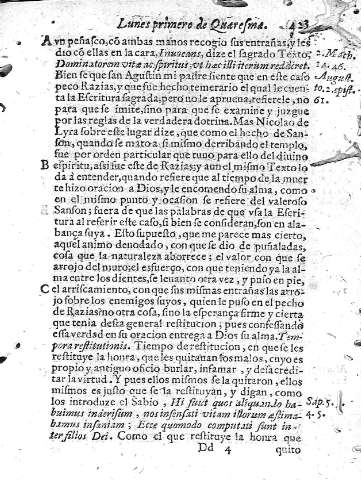 Lunes primero de Quaresma. 423
A vn peñasco, cõ ambas manos recogio sus entrañas, y les
dio cõ ellas en la cara. Inuocans, dize el sagrado Texto, 2. Mach.
Dominatorem vitæ ac spiritus, vt hæc illi iterum redderet. 14. 46.
Bien se que san Agustin mi padre siente que en este caso August.
peco Razias, y que fue hecho temerario el qual lo cuen- to. 2. epist.
ta la Escritura sagrada, pero no le aprueua, refierele, no 61.
para que se imite, sino para que se examine y juzgue
por las reglas de la verdadera dotrina. Mas Nicolao de
Lyra sobre este lugar dize, que como el hecho de San-
son, quando se mato a si mismo derribando el templo,
fue por orden particular que tuuo para ello del diuino
B espiritu, assi fue este de Razias; y aun el mismo Texto lo
da à entender, quando refiere que al tiempo de la muer
te hizo oracion a Dios, y le encomendo su alma, como
en el mismo punto y ocasion se refiere del valeroso
Sanson; fuera de que las palabras de que vsa la Escri-
tura al referir este caso, si bien se consideran, son en ala-
bança suya. Esto supuesto, que me parece mas cierto,
aquel animo denodado, con que se dio de puñaladas,
cosa que la naturaleza aborrece; el valor con que se
arrojo del muro; el esfuerço, con que teniendo ya la al-
ma entre los dientes, se leuanto otra vez, y puso en pie,
C el arriscamiento, con que sus mismas entrañas las arro-
jo sobre los enemigos suyos, quien le puso en el pecho
de Razias? no otra cosa, sino la esperança firme y cierta
que tenia desta general restitucion; pues confessando
essa verdad en su oracion entrega a Dios su alma. Tem-
pora restitutionis. Tiempo de restitucion, en que se les
restituye la honra, que les quitauan los malos, cuyo es
propio y antiguo oficio burlar, infamar, y desacredi-
tar la virtud. Y pues ellos mismos se la quitaron, ellos
mismos es justo que se la restituyan, y digan, como
los introduze el Sabio, Hi sunt quos aliquando ha- Sap. 5.
buimus in derisum, nos insensati vitam illorum æstima- 4. 5.
bamus insaniam; Ecce quomodo computati sunt in-
ter filios Dei. Como el que restituye la honra que
Dd 4 quito